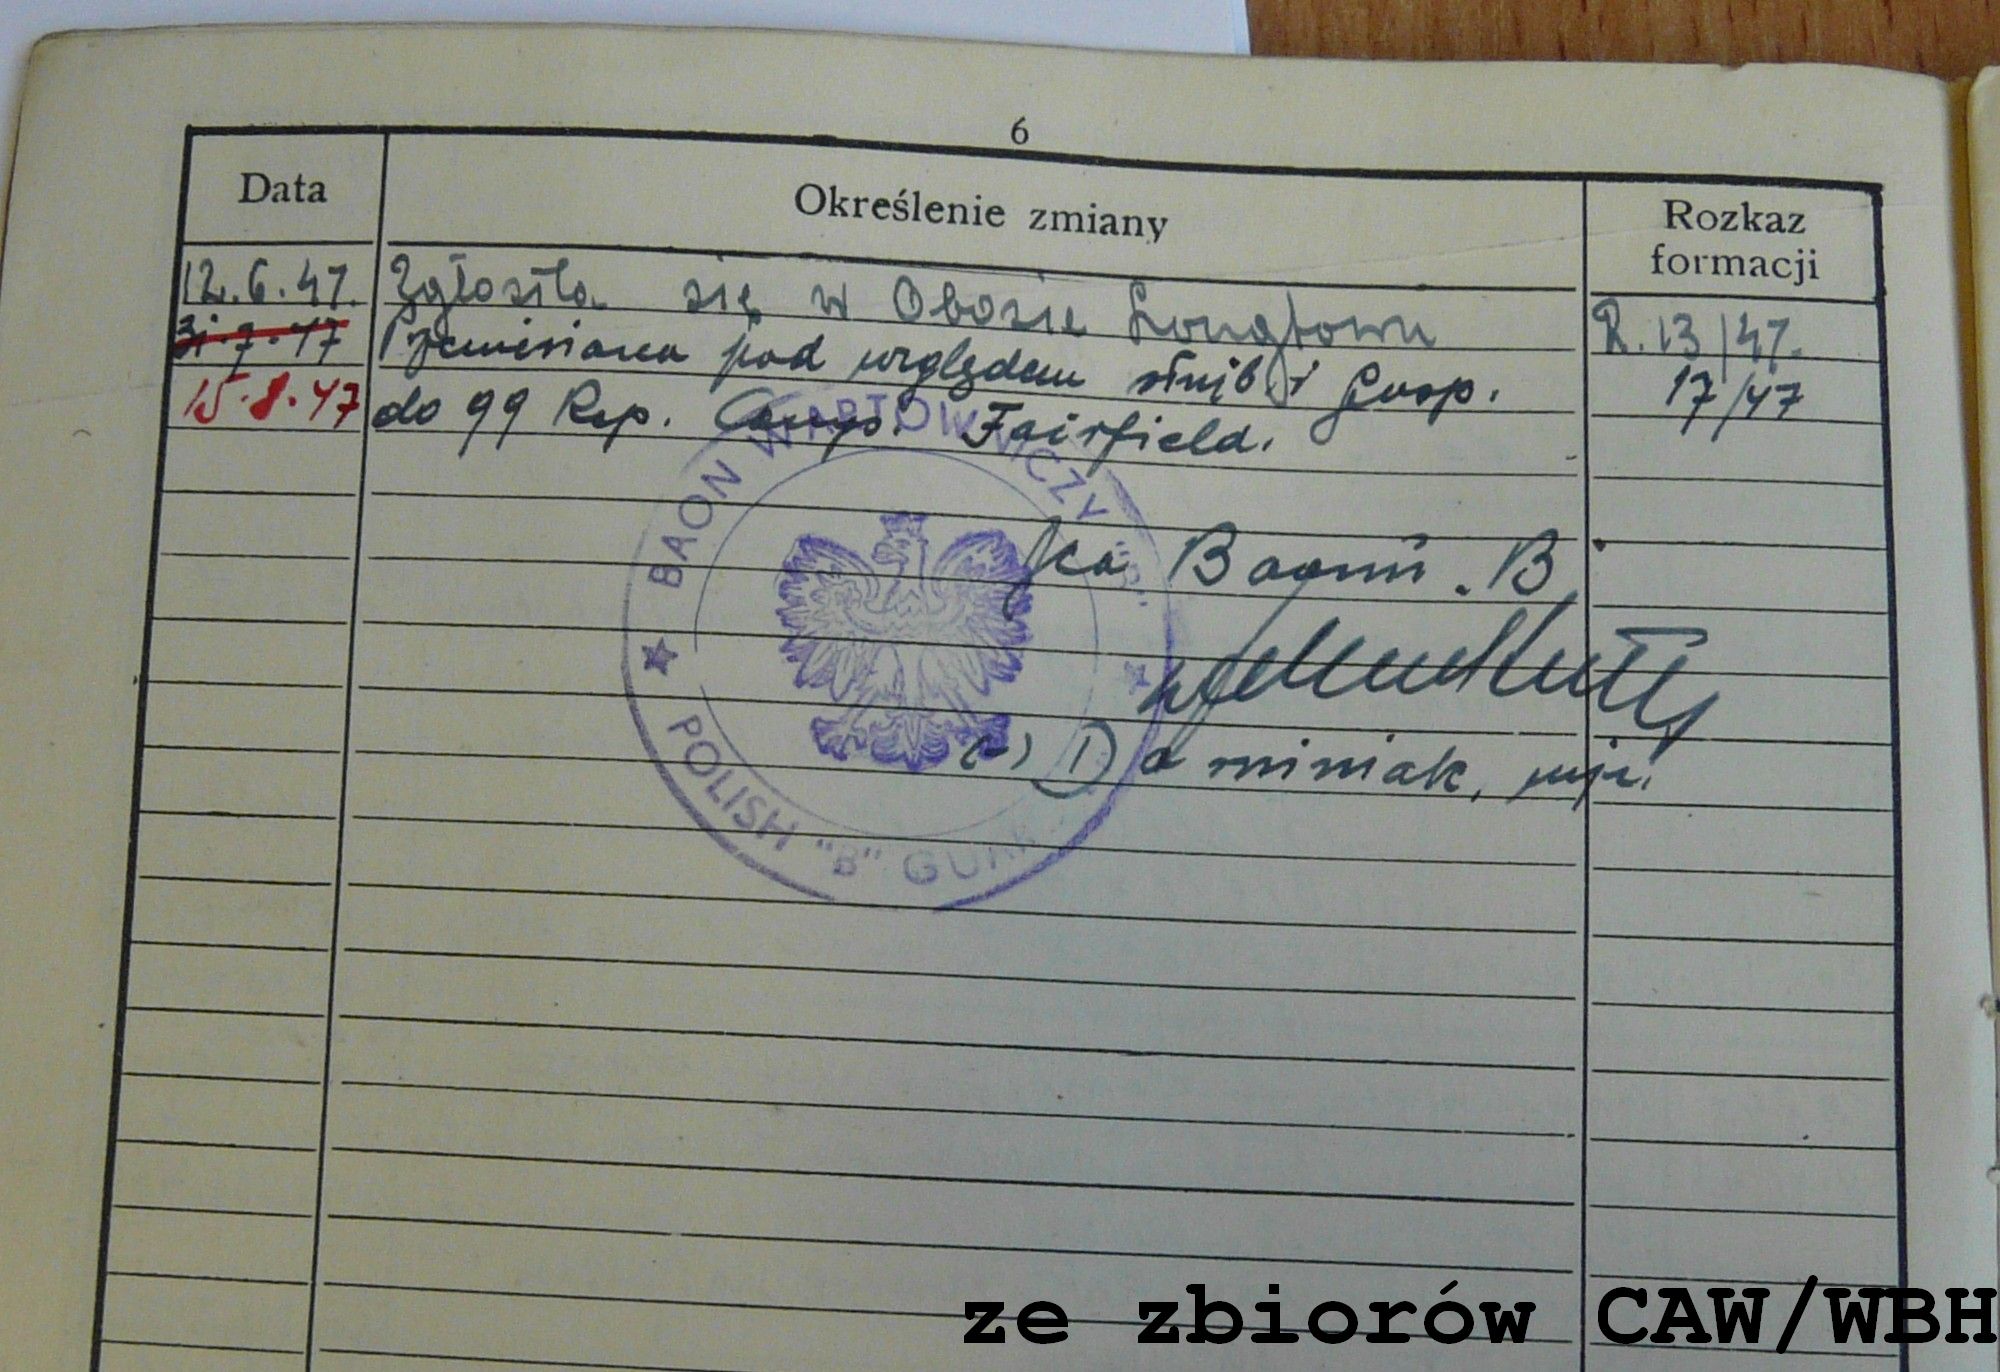 6
Data Określenie zmiany Rozkaz formacji
12.6.47. Zgłosiła się w Obozie Longtown R. 13/47.
31.7.47 Przeniesiona pod względem służb. i gosp. 17/47
15.8.47 do 99 Rep. Camp. Fairfield.
BAON WARTOWNICZY "B"
Baonu "B"
(-) Dominiak, mjr.
POLISH "B" GUARD
ze zbiorów CAW/WBH